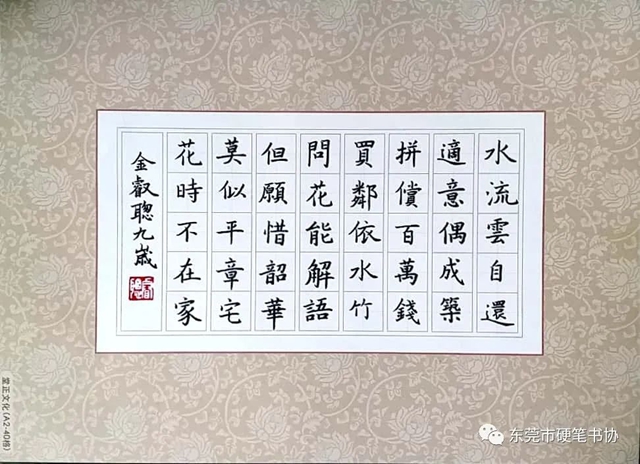 水流雲自還
適意偶成築
拼償百萬錢
買鄰依水竹
問花能解語
但願惜韶華
莫似平章宅
花時不在家
金叡聰九歲
堂正文化(A2-40格)
东莞市硬笔书协